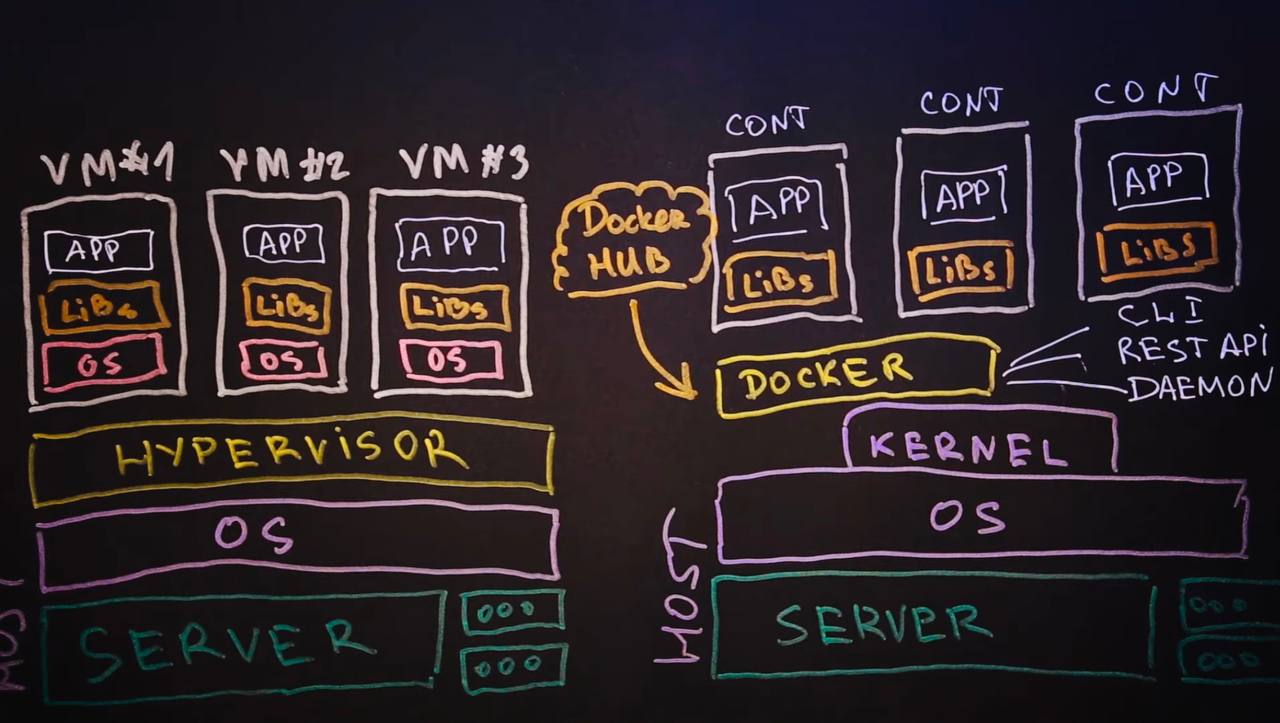 VM#1
APP
LiBs
OS
VM #2
APP
LiBs
OS
VM #3
APP
LiBs
OS
HYPERViSOR
OS
SERVER
HOST
Docker
HUB
CONT
APP
LiBs
CONT
APP
LiBs
CONT
APP
LiBs
DOCKER
CLI
REST APi
DAEMON
KERNEL
OS
HOST
SERVER